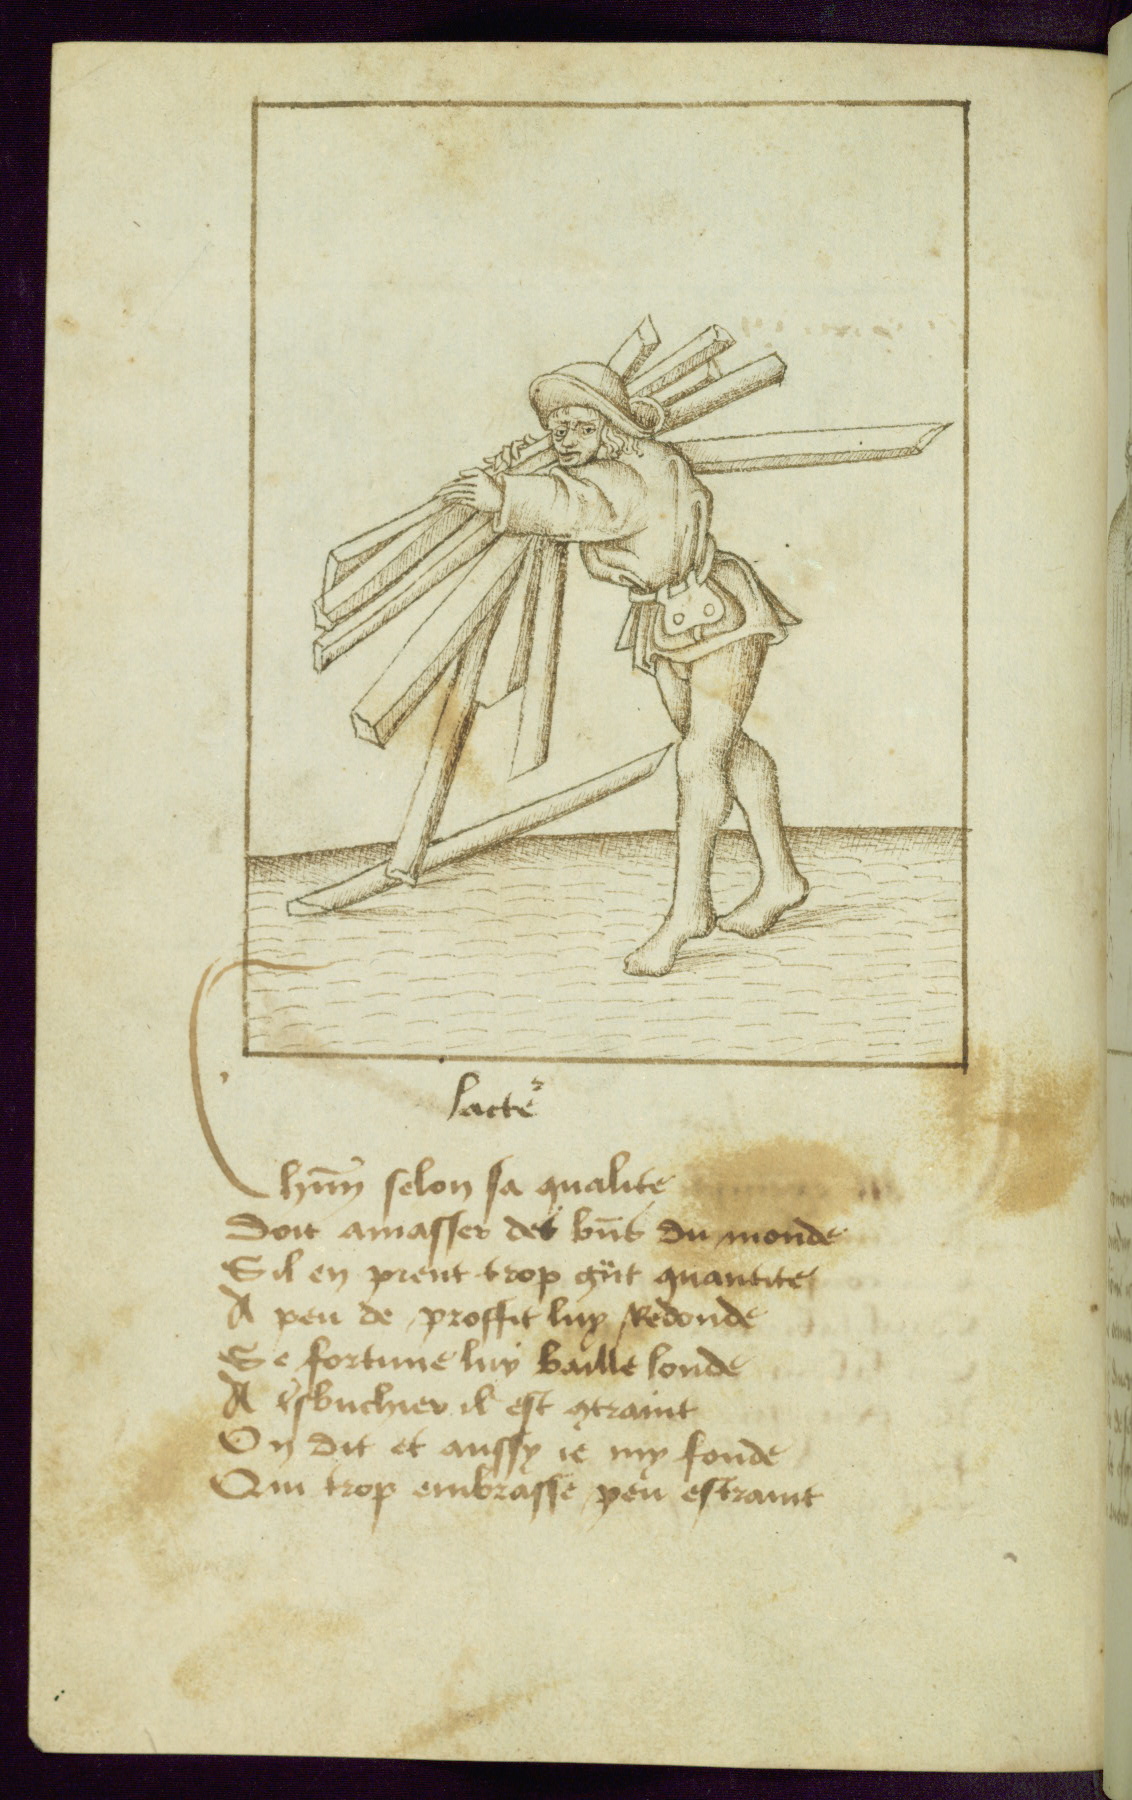 lacteʳ
Chūn selon sa qualite
Doit amasser des bñs du monde
Sil en prent trop gñt quantite
A peu de proffit luy Redonde
Se fortune luy baille londe
A tʳsbuchier il est 9traint
On dit et aussy ie my fonde
Qui trop embrasse peu estraint